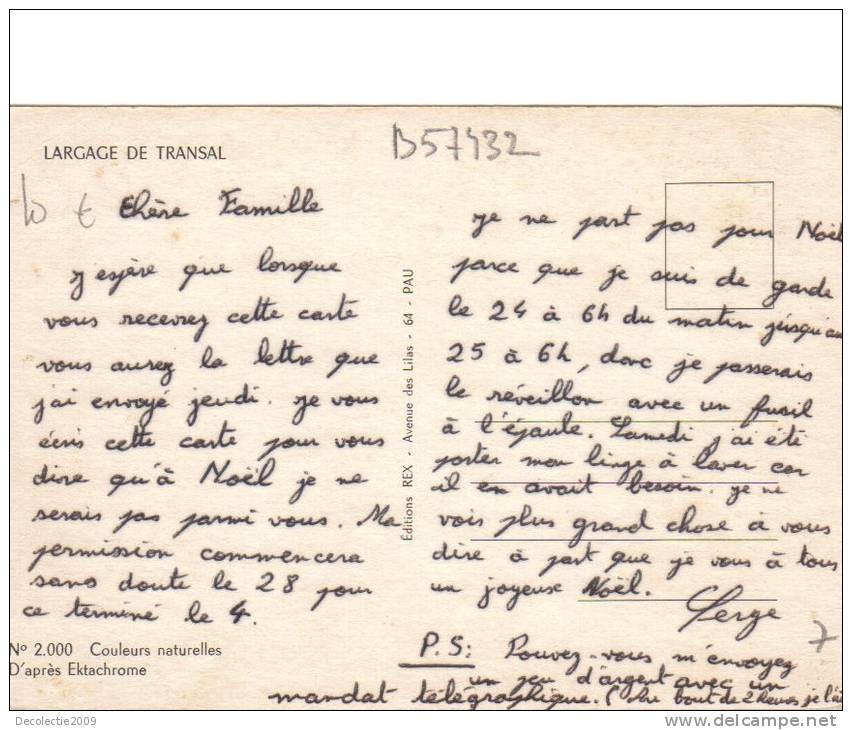 LARGAGE DE TRANSAL
B57432
10 €
Chère Famille
J'espère que lorsque
vous recevrez cette carte
vous aurez la lettre que
j'ai envoyé jeudi. Je vous
écris cette carte pour vous
dire qu'à Noël je ne
serais pas parmi vous. Ma
permission commencera
sans doute le 28 pour
ce terminé le 4.
Nº 2.000 Couleurs naturelles
D'après Ektachrome
Éditions REX - Avenue des Lilas - 64 - PAU
Je ne part pas pour Noël
parce que je suis de garde
le 24 à 6h du matin jusqu'au
25 à 6h, donc je passerais
le réveillon avec un fusil
à l'épaule. Samedi j'ai été
porter mon linge à laver car
il en avait besoin. Je ne
vois plus grand chose à vous
dire à part que je vous à tous
un joyeuse Noël.
Serge
7
P.S: Pouvez-vous m'envoyez
un peu d'argent avec un
mandat télégraphique. ( bout de 2 heures je l'ai
Decolectie2009
www.delcampe.net